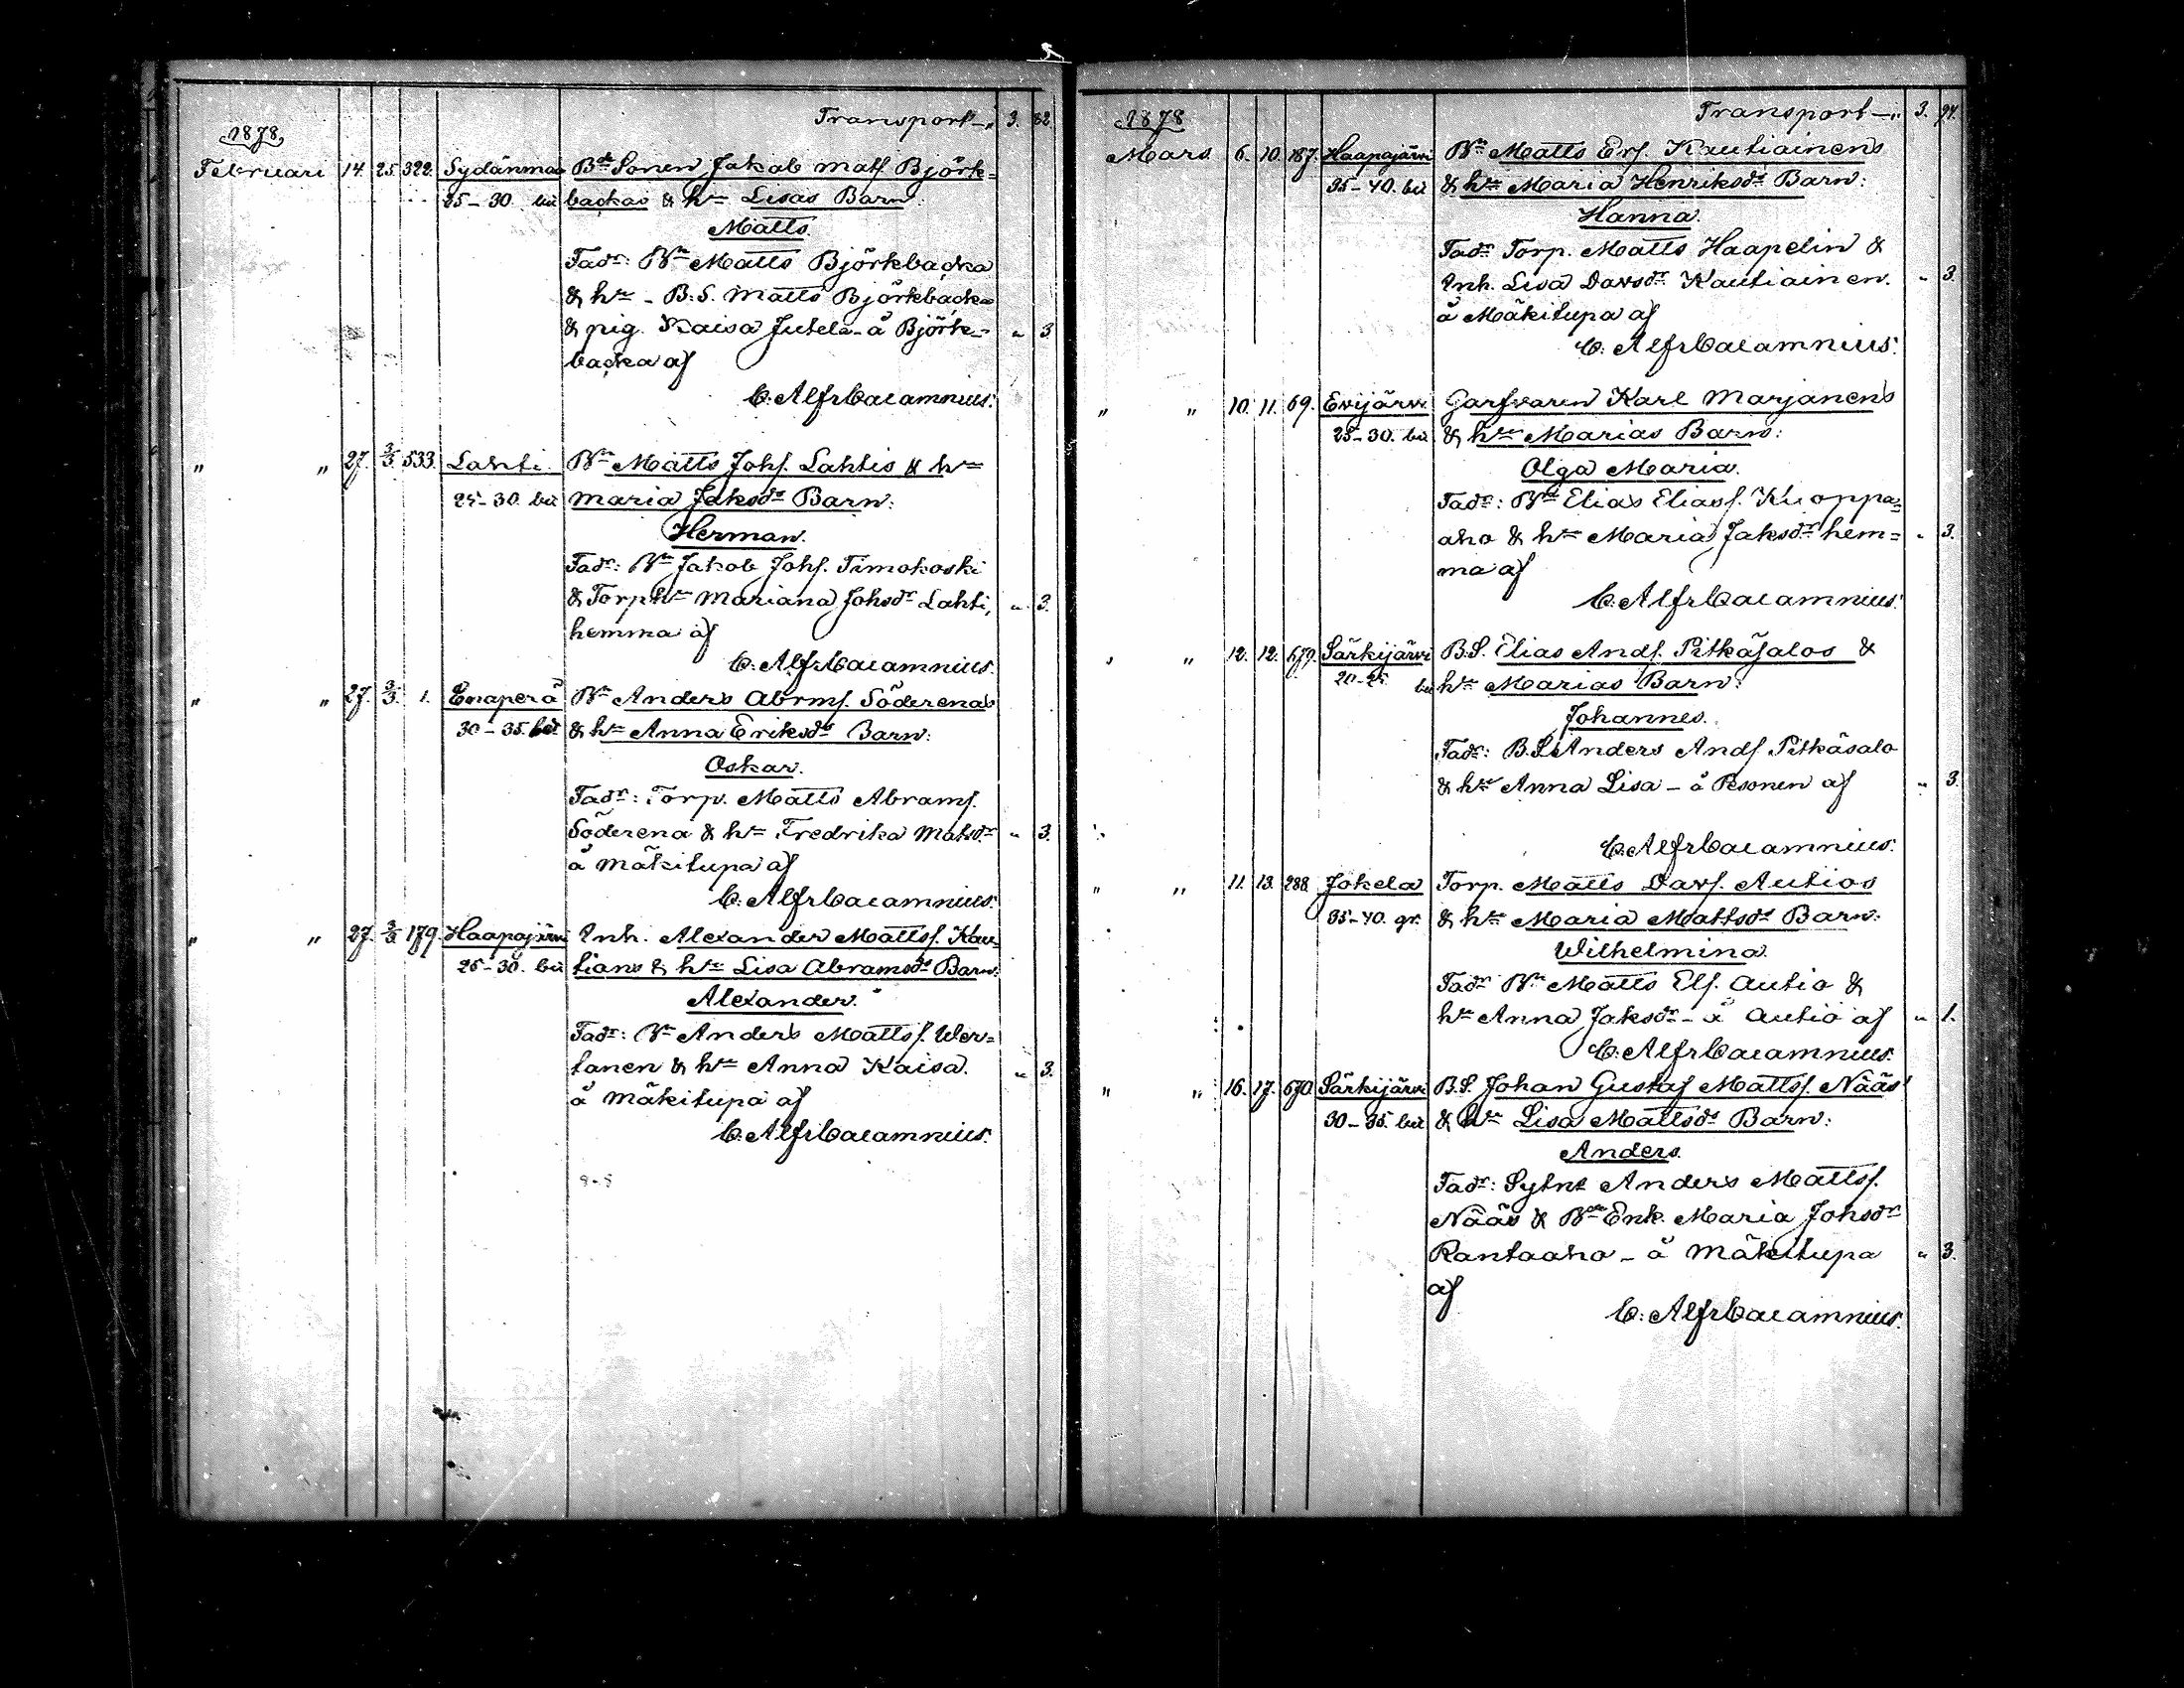 Transport — „ 3. 82.
1878
Februari 14. 25. 322. Sydänmaa Bde Sonen Jakob Matts. Björk-
25-30. bd backas & hu Lisas Barn:
Matts.
Fadr: Bn Matts Björkbacka
& hu - B.S. Matts Björkbacka
& pig. Kaisa Jutela - å Björk- „ 3.
backa af
C: Alfr Cacamnius.
„ „ 27. 3/3. 533. Lahti. Bn Matts Johs. Lahtis & hu
25-30. bd Maria Jaksdr Barn:
Herman.
Fadr: Bn Jakob Johs. Timokoski
& Torp hu Mariana Johsdr Lahti, „ 3.
hemma af
C: Alfr Cacamnius.
„ „ 27. 3/3. 1. Enaperä Bn Anders Abrms. Söderena's
30-35. bd & hu Anna Eriksdr Barn:
Oskar.
Fadr: Torp. Matts Abrams.
Söderena & hu Fredrika Matsdr „ 3.
å Mäkitupa af
C: Alfr Cacamnius.
„ „ 27. 3/3. 179. Haapajärvi Inh. Alexander Mattss. Kau-
25-30. bd tians & hu Lisa Abramsdr Barn:
Alexander.
Fadr: Bn Anders Mattss. Wer-
tanen & hu Anna Kaisa. „ 3.
å Mäkitupa af
C: Alfr Cacamnius.
Transport — „ 3. 94.
1878
Mars 6. 10. 187. Haapajärvi Bn Matts Ers. Kautiainens
35-40. bd & hu Maria Henriksdr Barn:
Hanna.
Fadr Torp. Matts Haapelin &
Inh. Lisa Davsdr Kautiainen. „ 3.
å Mäkitupa af
C: Alfr Cacamnius.
„ „ 10. 11. 69. Evijärvi Garfvaren Karl Marjanens
25-30. bd & hu Marias Barn:
Olga Maria.
Fadr: Bn Elias Eliass. Kuoppa-
aho & hu Maria Jaksdr hem- „ 3.
ma af
C: Alfr Cacamnius.
„ „ 12. 12. 679. Särkijärvi B.S. Elias Ands. Pitkäsalos &
20-25 bd hu Marias Barn:
Johannes.
Fadr: B.S. Anders Ands. Pitkäsalo
& hu Anna Lisa - å Pesonen af „ 3.
C: Alfr Cacamnius.
„ „ 11. 13. 288. Jokela Torp. Matts Davs. Autios
35-40. gr. & hu Maria Mattsdr Barn:
Wilhelmina.
Fadr Bn Matts Els. Autio &
hu Anna Jaksdr - å Autio af „ 1.
C: Alfr Cacamnius.
„ „ 16. 17. 670. Särkijärvi B.S. Johan Gustaf Mattss. Nääs'
30-35. bd & hu Lisa Mattsdr Barn:
Anders.
Fadr: Sytns Anders Mattss.
Nääs & Bde Enk. Maria Johsdr
Rantaaho - å Mäkitupa „ 3.
af
C: Alfr Cacamnius.